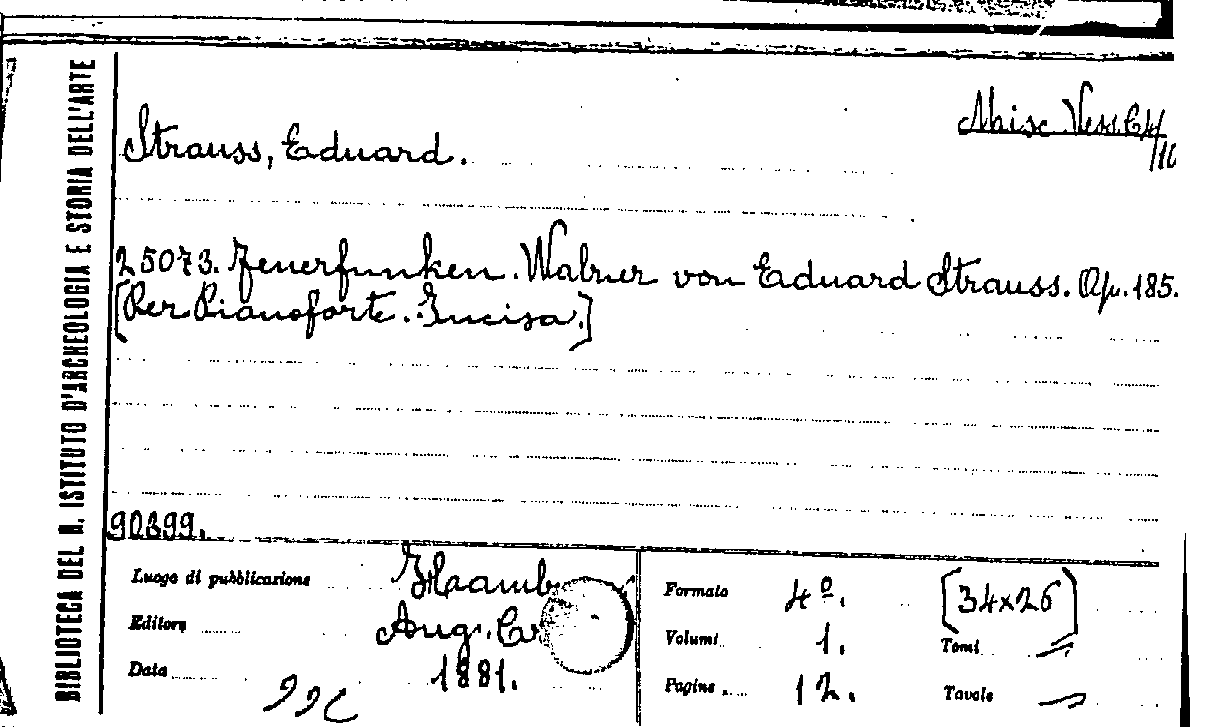 BIBLIOTECA DEL R. ISTITUTO D'ARCHEOLOGIA E STORIA DELL'ARTE
Misc. Vess.
/10
Strauss, Eduard.
25073. Feuerfunken. Walzer von Eduard Strauss. Op. 185.
[Per Pianoforte. Incisa.]
90399.
Luogo di pubblicazione Hamb
Editore Aug. Cr
Data 1881.
Formato 4º. [34x26]
Volumi 1. Tomi
Pagine 12. Tavole